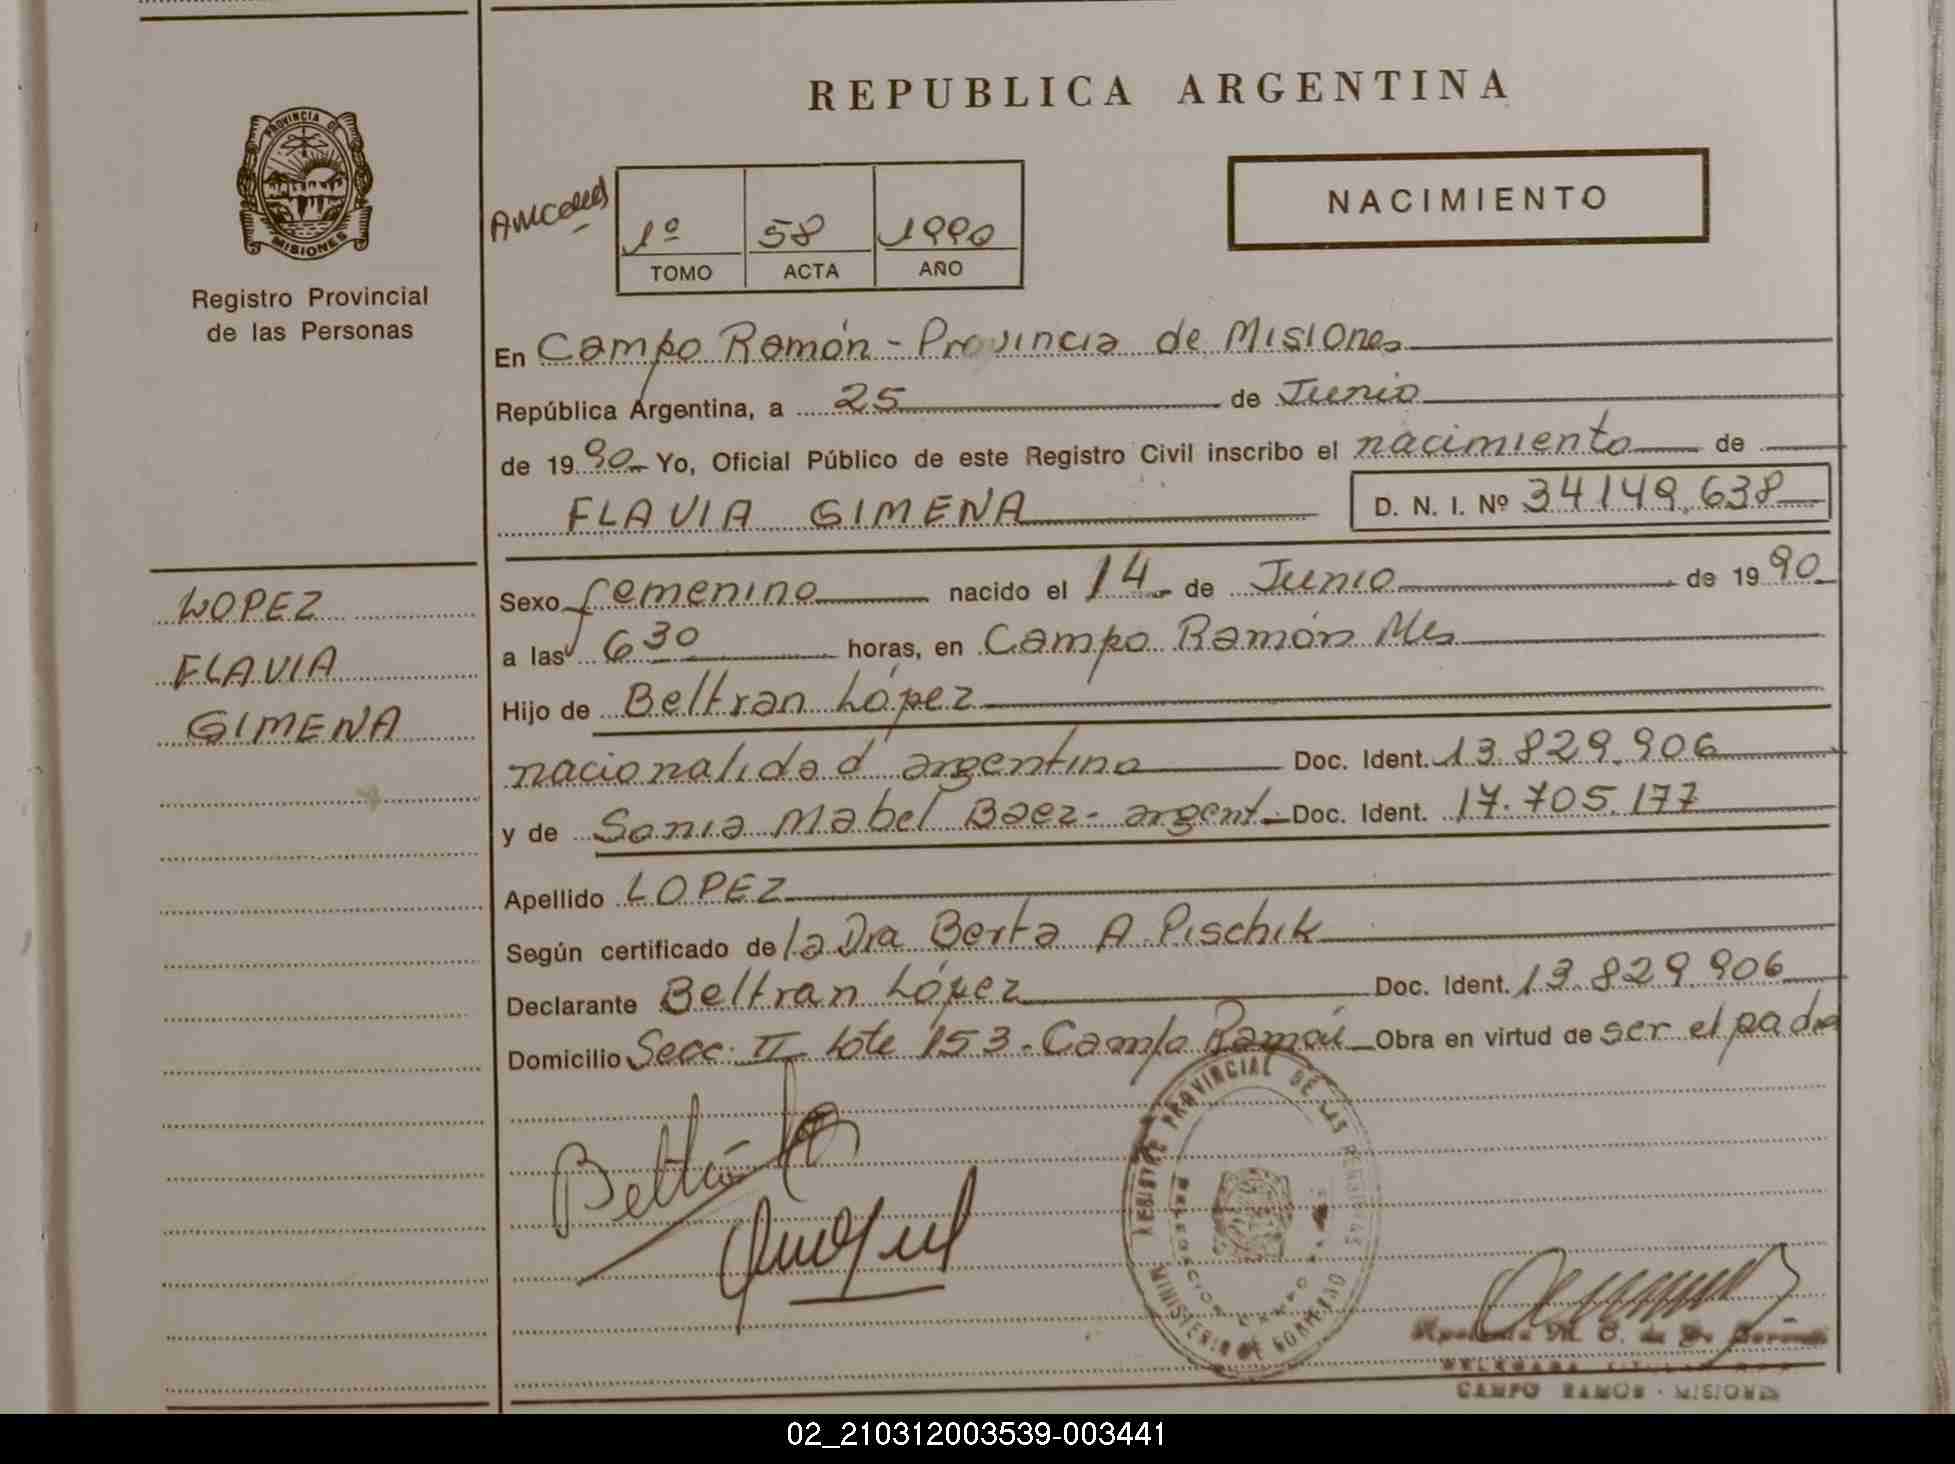 REPUBLICA ARGENTINA
PROVINCIA DE
MISIONES
Registro Provincial
de las Personas
NACIMIENTO
1º 58 1990
TOMO ACTA AÑO
En Campo Ramón - Provincia de Misiones
República Argentina, a 25 de Junio
de 1990 Yo, Oficial Público de este Registro Civil inscribo el nacimiento de
FLAVIA GIMENA D. N. I. Nº 34149.638
LOPEZ
FLAVIA
GIMENA
Sexo femenino nacido el 14 de Junio de 1990
a las 6 30 horas, en Campo Ramón Mes
Hijo de Beltran López
nacionalidad argentina Doc. Ident. 13.829.906
y de Sonia Mabel Baez - argent. Doc. Ident. 17.705.177
Apellido LOPEZ
Según certificado de la Dra Berta A. Pischik
Declarante Beltran López Doc. Ident. 13.829.906
Domicilio Secc. II lote 153 - Campo Ramón Obra en virtud de ser el padre
REGISTRO PROVINCIAL DE LAS PERSONAS
MINISTERIO DE GOBIERNO
CAMPO RAMON - MISIONES
02_210312003539-003441